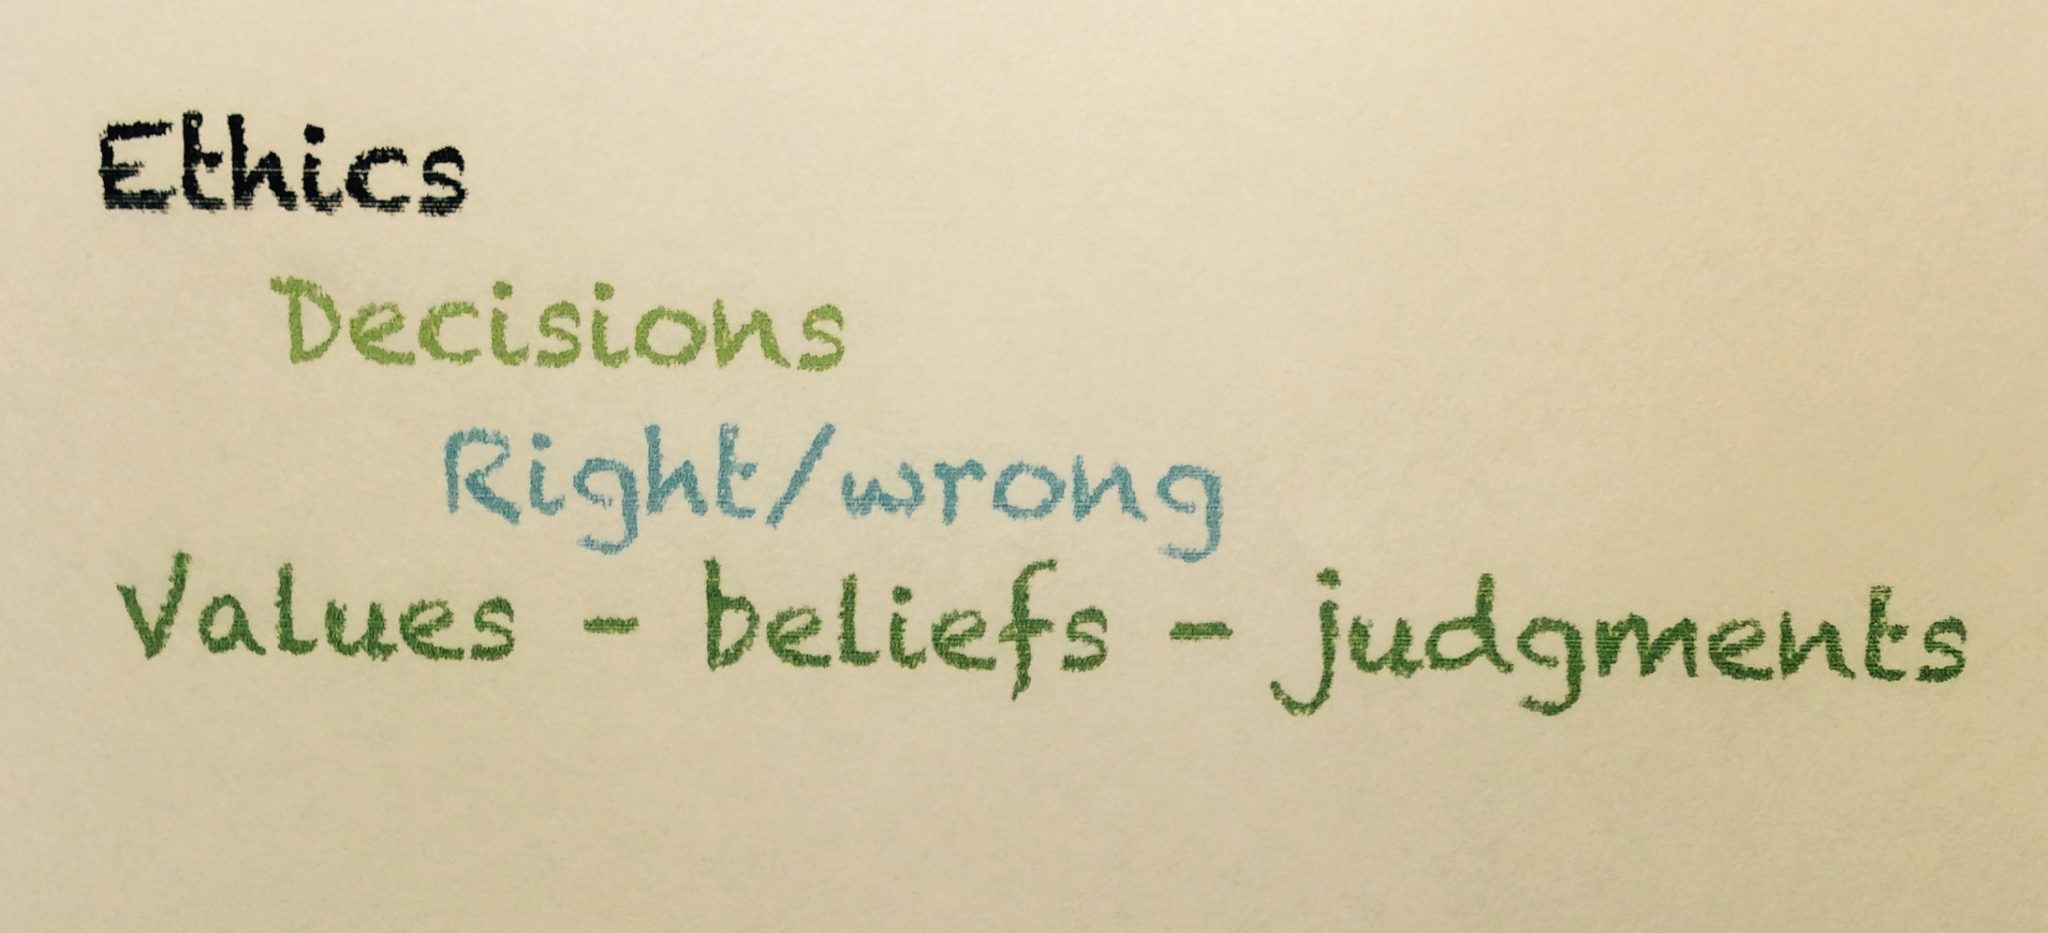 Ethics
Decisions
Right/wrong
Values - beliefs - judgments